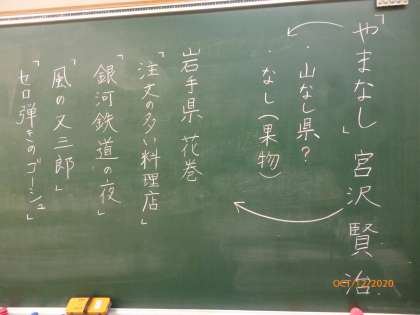 「やまなし」 宮沢賢治
・山なし県?
・なし(果物)
岩手県 花巻
「注文の多い料理店」
「銀河鉄道の夜」
「風の又三郎」
「セロ弾きのゴーシュ」
OCT/12/2020